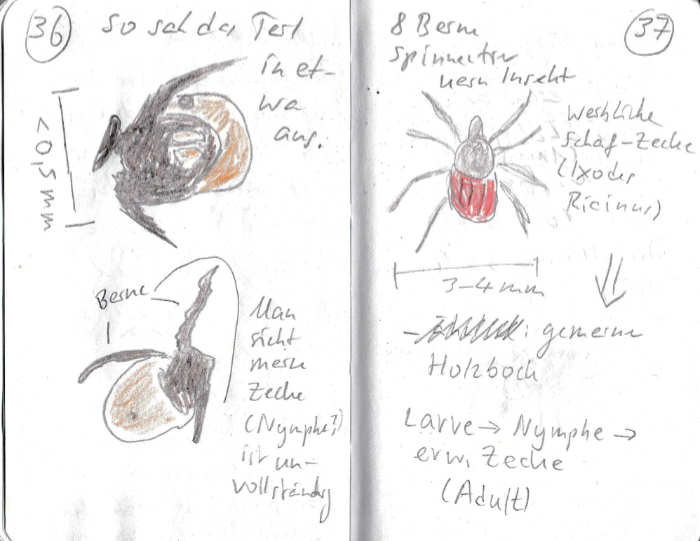 36
So sah das
in et-
wa
aus.
<0,5 mm
Beine
Man
sieht
meine
Zecke
(Nymphe?)
ist un-
vollständig
37
8 Beine
Spinnentier
kein Insekt
Weibliche
Schaf-Zecke
(Ixodes
Ricinus)
3-4 mm
: gemeiner
Holzbock
Larve → Nymphe →
erw. Zecke
(Adult)